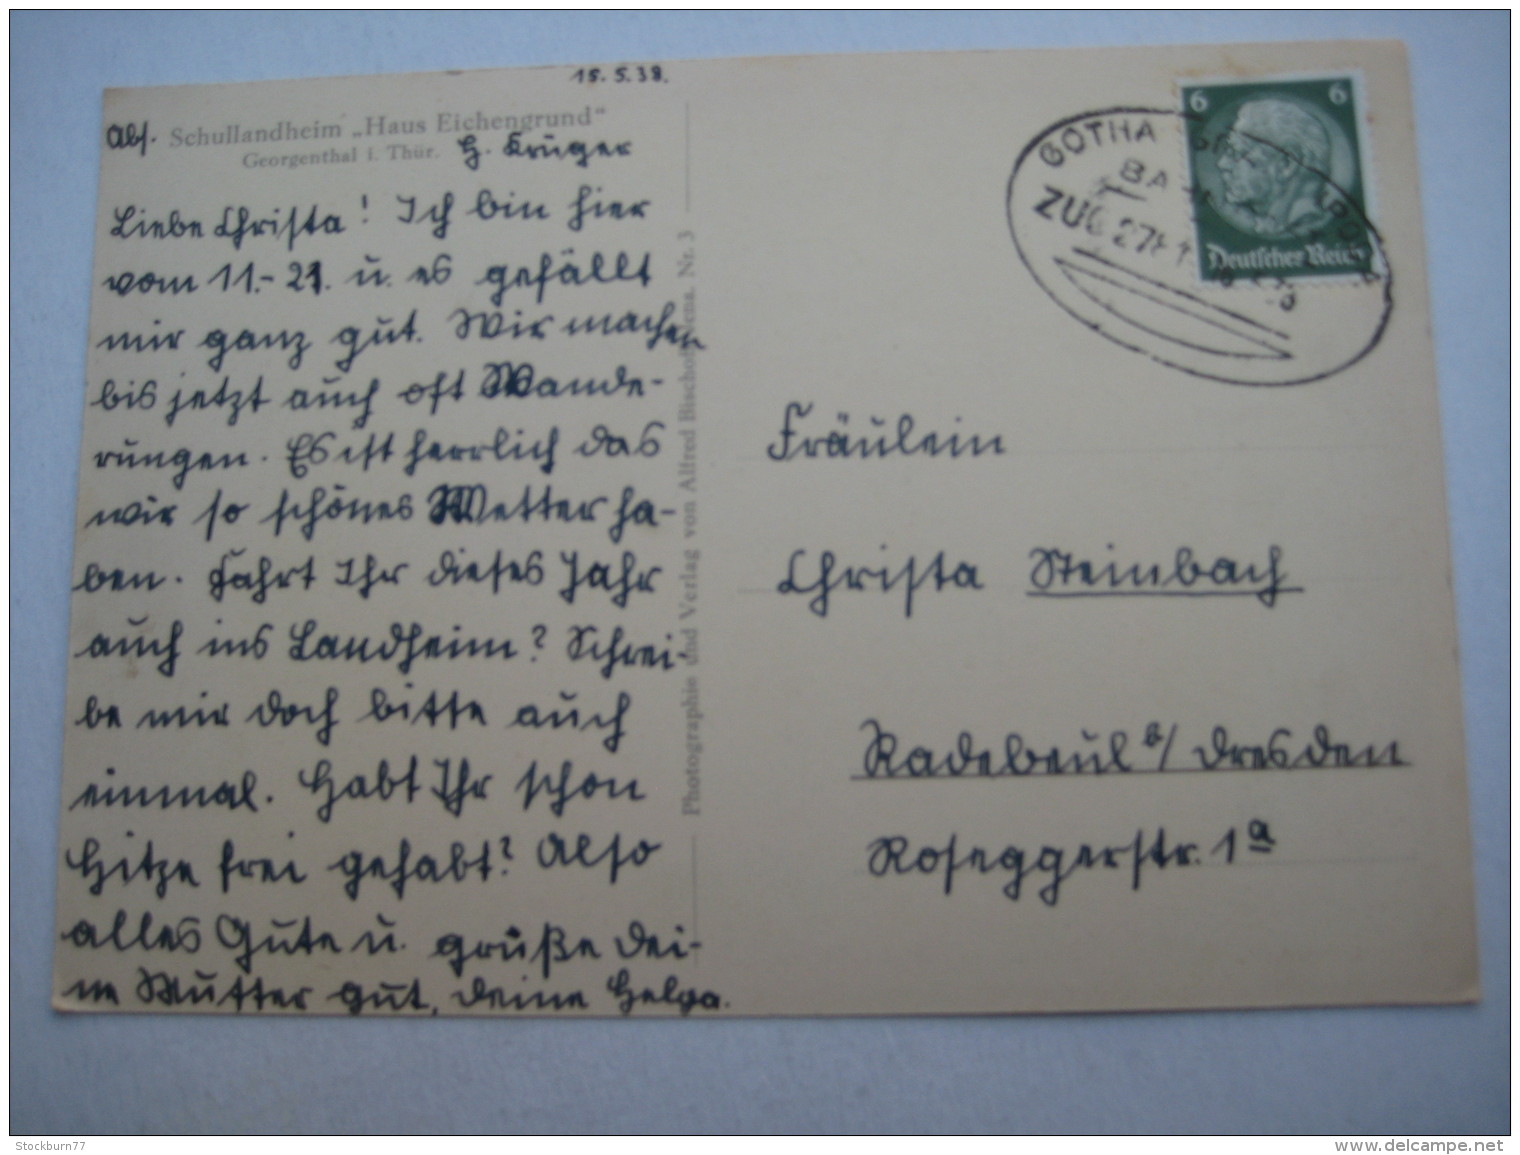 15.5.38.
Abs. Schullandheim „Haus Eichengrund“
Georgenthal i. Thür. H. Krüger
Liebe Christa! Ich bin hier
vom 11.-21. u. es gefällt
mir ganz gut. Wir machen
bis jetzt auch oft Wande-
rungen. Es ist herrlich das
wir so schönes Wetter ha-
ben. Fahrt Ihr dieses Jahr
auch ins Landheim? Schrei-
be mir doch bitte auch
einmal. Habt Ihr schon
Hitze frei gehabt? Also
alles Gute u. grüße dei-
ne Mutter gut, deine Helga.
Photographie und Verlag von Alfred Bischoff, Jena. Nr. 3
GOTHA
BA
ZUG 271
6 6
Deutsches Reich
Fräulein
Christa Steinbach
Radebeul b/ Dresden
Roseggerstr. 1a
Stockburn77
www.delcampe.net